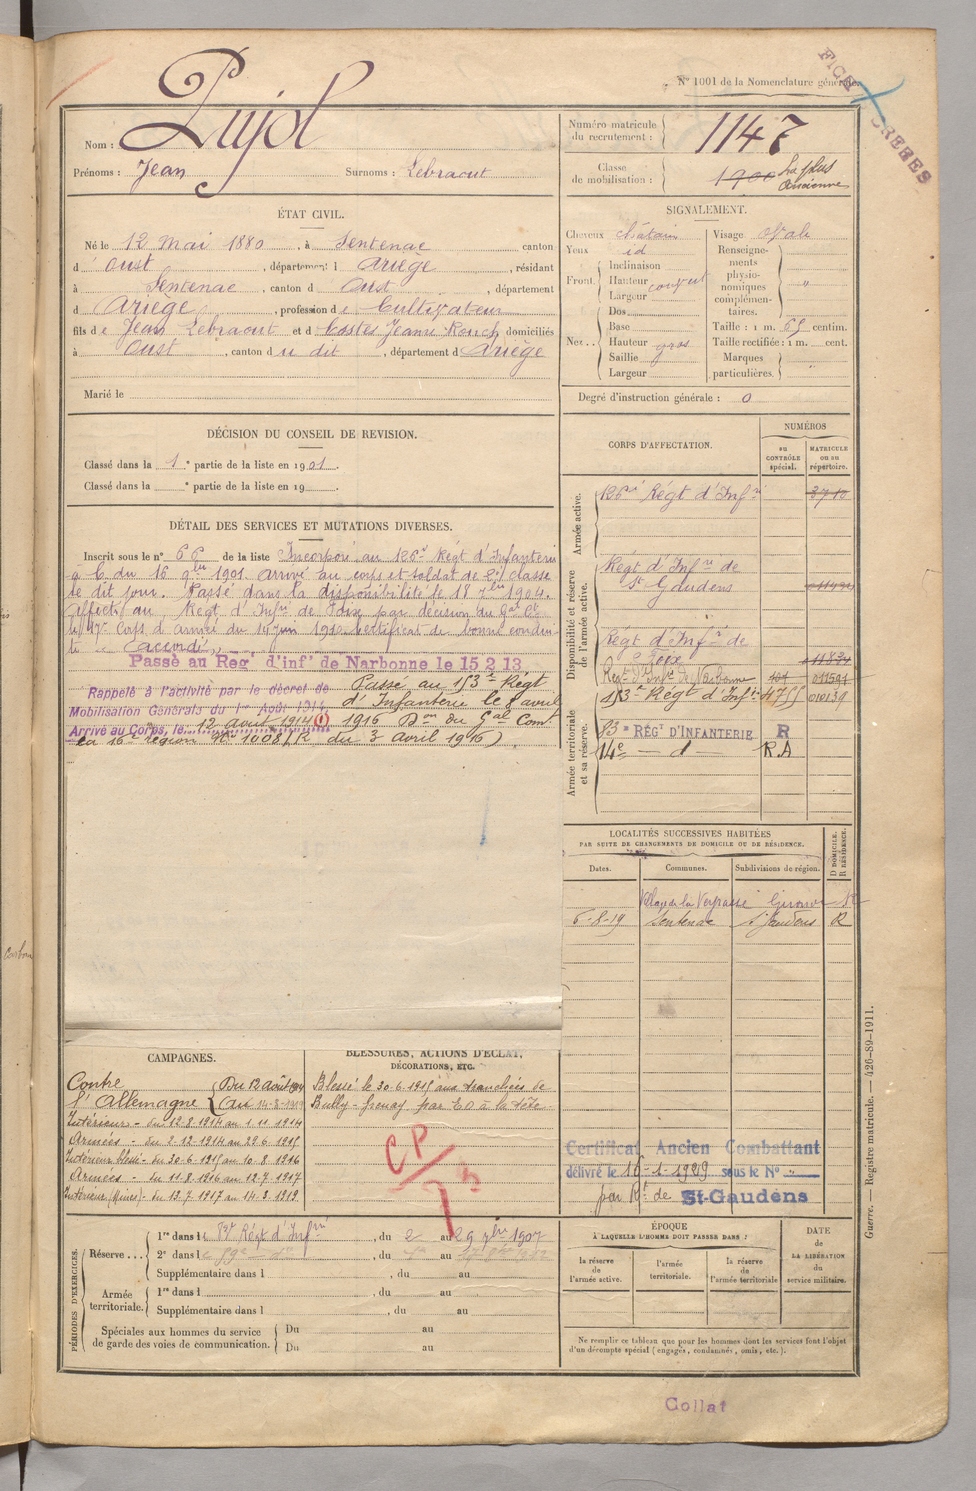 N° 1001 de la Nomenclature générale.
Nom : Pujol
Prénoms : Jean Surnoms : Lebraout
Numéro matricule du recrutement : 1147
Classe de mobilisation : 1900 La plus Ancienne
ÉTAT CIVIL.
Né le 12 Mai 1880, à Sentenac canton
d'Oust, département d Ariège, résidant
à Sentenac, canton d Oust, département
d Ariège, profession de Cultivateur
fils de Jean Lebraout et d Costes Jeanne Ronch domiciliés
à Oust, canton du dit, département d Ariège
Marié le
SIGNALEMENT.
Cheveux châtain Visage Ovale
Yeux id
Front Inclinaison
Hauteur couvert
Largeur
Nez Dos
Base
Hauteur gros
Saillie
Largeur
Renseignements physionomiques complémentaires. "
Taille : 1 m. 65 centim.
Taille rectifiée : 1 m. cent.
Marques particulières.
Degré d'instruction générale : 0
DÉCISION DU CONSEIL DE REVISION.
Classé dans la 1e partie de la liste en 1901.
Classé dans la e partie de la liste en 19
CORPS D'AFFECTATION.
NUMÉROS
au CONTRÔLE spécial.
MATRICULE ou au répertoire.
Armée active.
126me Régt d'Infie 3710
Disponibilité et réserve de l'armée active.
Régt d'Infie de
St Gaudens
Régt d'Infie de
Foix
Régt d'Infie de Narbonne
153e Régt d'Infie 4755
Armée territoriale et sa réserve.
83e RÉGt D'INFANTERIE R
14e — d — R.A
DÉTAIL DES SERVICES ET MUTATIONS DIVERSES.
Inscrit sous le n° 66 de la liste Incorporé au 126e Régt d'Infanterie
à c. du 16 9bre 1901. Arrivé au corps et soldat de 2e classe
le dit jour. Passé dans la disponibilité le 18 7bre 1904.
Affecté au Régt d'Infie de Foix par décision du Gal Ct
le 17e Corps d'armée du 14 juin 1910. Certificat de bonne condui-
te accordé
Passé au Rég. d'inft de Narbonne le 15 2 13
Rappelé à l'activité par le décret de
Mobilisation Générale du 1er Août 1914.
Arrivé au Corps, le 12 aout 1914 (1)
Passé au 153e Régt
d'Infanterie le 8 avril
1916 Don du Gal Comt
la 16e région No 10081 R du 3 avril 1916)
LOCALITÉS SUCCESSIVES HABITÉES
PAR SUITE DE CHANGEMENTS DE DOMICILE OU DE RÉSIDENCE.
Dates. Communes. Subdivisions de région. D DOMICILE. R RÉSIDENCE.
6-8-19 Sentenac St Gaudens R
CAMPAGNES.
Contre
l'Allemagne
Du 12 août 1914
au 14-3-1919
Intérieur - du 12.8.1914 au 1.11.1914
Armées - du 2.12.1914 au 29.6.1915
Intérieur blessé - du 30.6.1915 au 10.8.1916
Armées - du 11.8.1916 au 12.7.1917
Intérieur (Mines) - du 13.7.1917 au 14.3.1919.
BLESSURES, ACTIONS D'ÉCLAT,
DÉCORATIONS, ETC.
Blessé le 30-6-1915 aux tranchées de
Bully-Grenay par EO à la tête.
CP
Certificat Ancien Combattant
délivré le 16-1-1929 sous le N° "
par Rt de St-Gaudens
PÉRIODES D'EXERCICES.
Réserve...
1re dans le Régt d'Infie, du 2 au 29 9bre 1907
2e dans l , du au
Supplémentaire dans l , du au
Armée territoriale.
1re dans l , du au
Supplémentaire dans l , du au
Spéciales aux hommes du service de garde des voies de communication.
Du au
Du au
ÉPOQUE
À LAQUELLE L'HOMME DOIT PASSER DANS :
la réserve de l'armée active.
l'armée territoriale.
la réserve de l'armée territoriale
DATE de LA LIBÉRATION du service militaire.
Ne remplir ce tableau que pour les hommes dont les services font l'objet
d'un décompte spécial (engagés, condamnés, omis, etc.).
Guerre. — Registre matricule. — 426-89-1911.
Collat